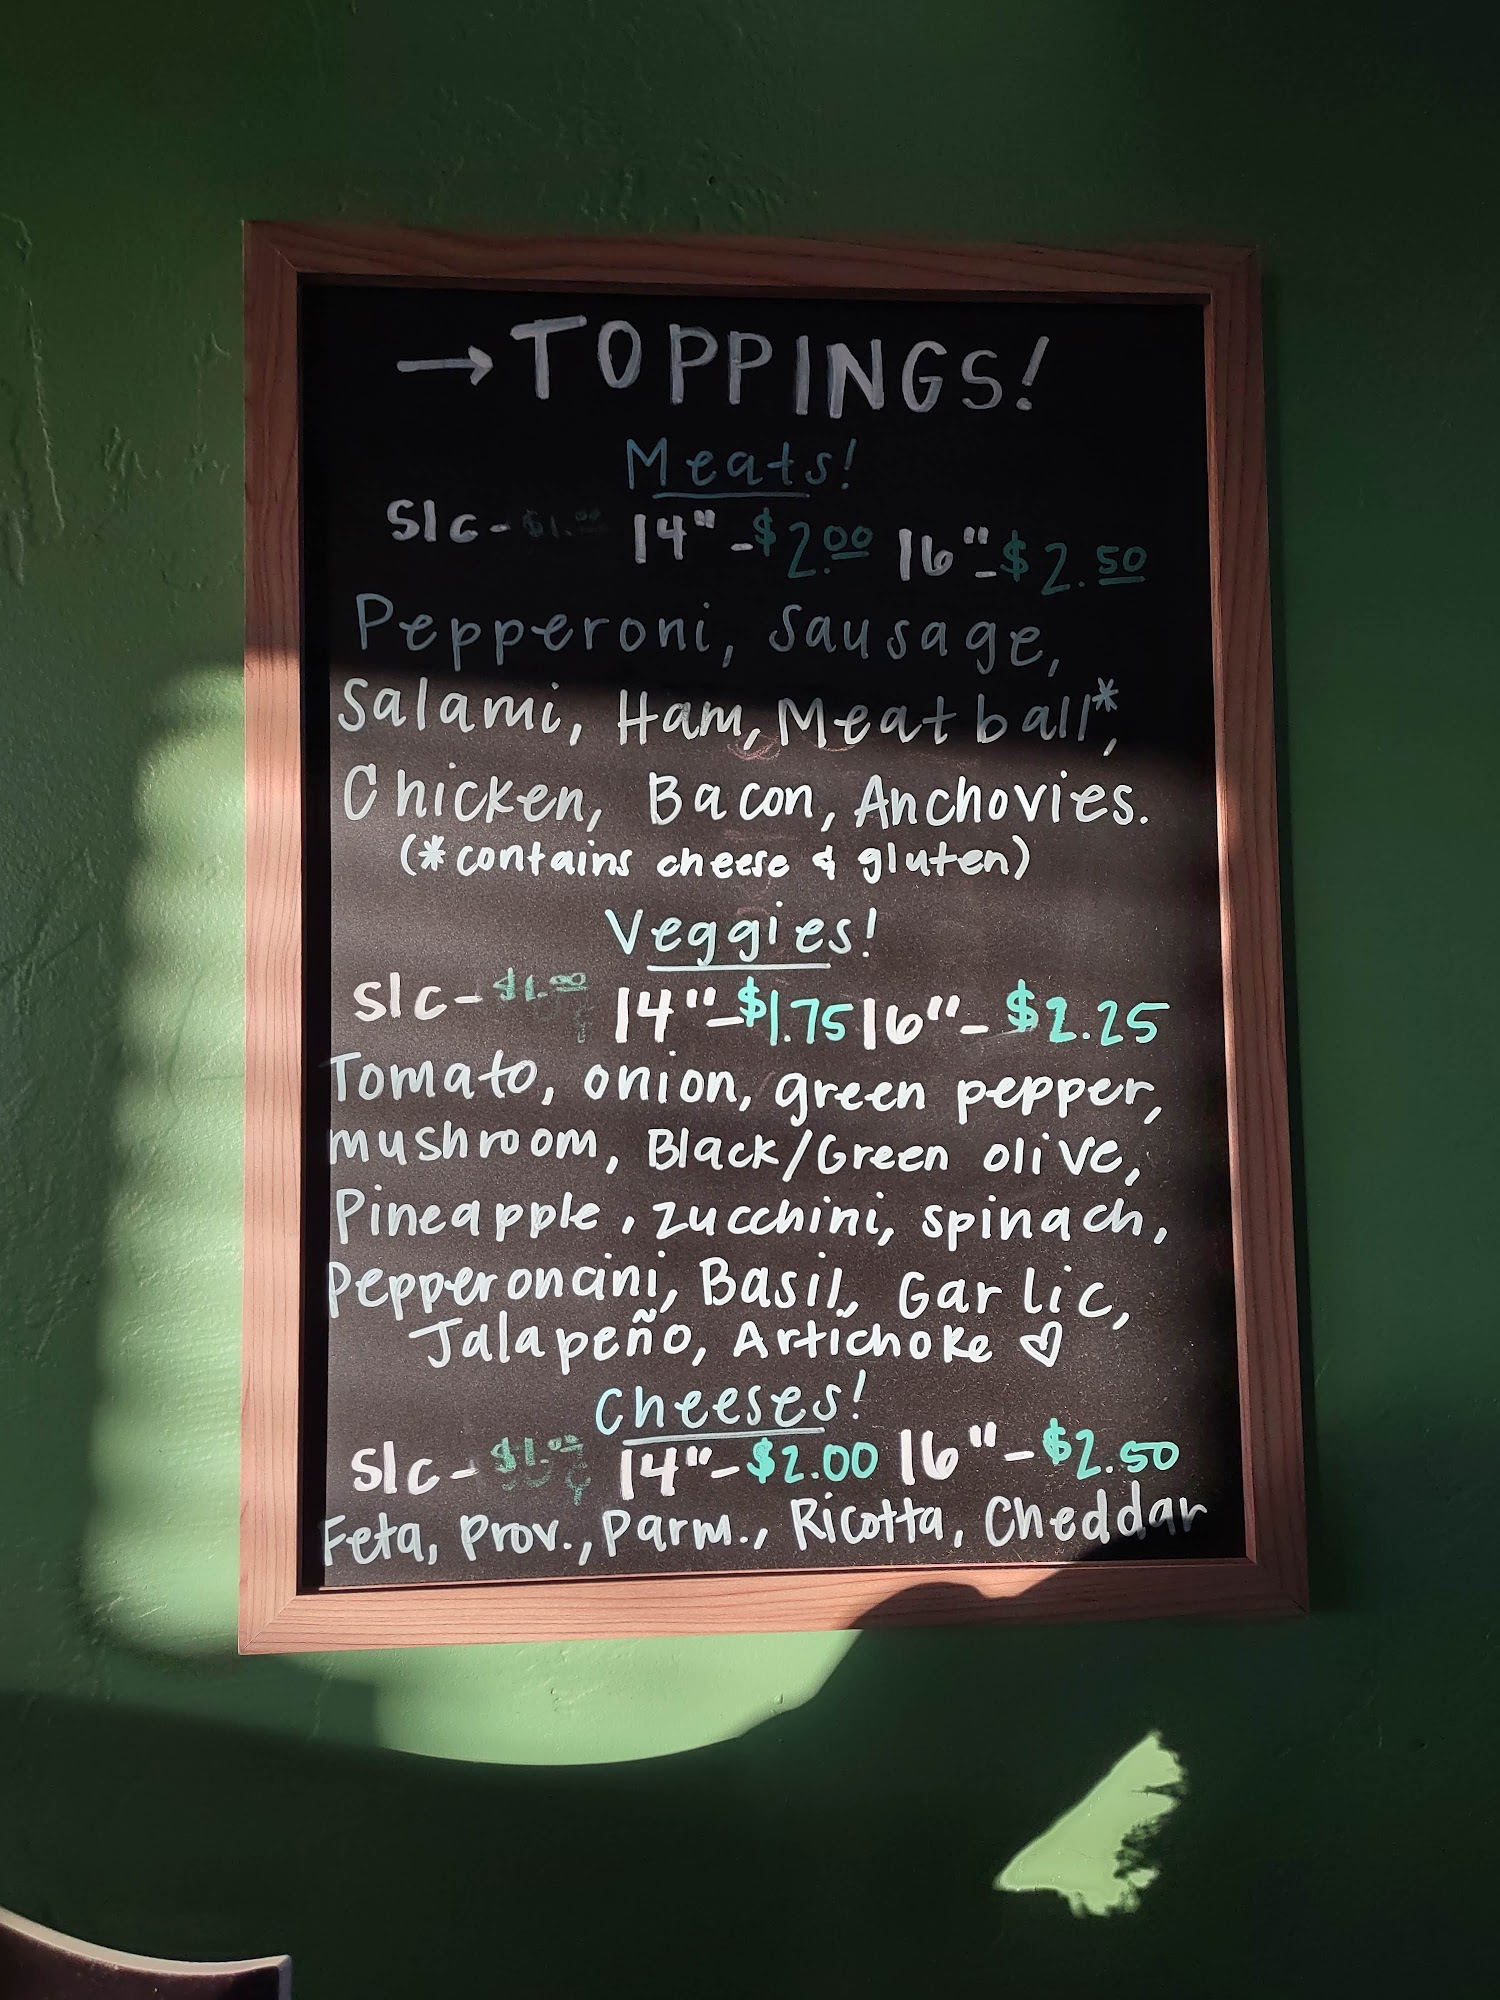 → TOPPINGS!
Meats!
Slc - $1.00 14" - $2.00 16" - $2.50
Pepperoni, Sausage,
Salami, Ham, Meatball*,
Chicken, Bacon, Anchovies.
(*contains cheese & gluten)
Veggies!
Slc - $1.00 14" - $1.75 16" - $2.25
Tomato, onion, green pepper,
mushroom, Black/Green olive,
Pineapple, zucchini, spinach,
Pepperoncini, Basil, Garlic,
Jalapeño, Artichoke ♡
Cheeses!
Slc - $1.00 14" - $2.00 16" - $2.50
Feta, Prov., Parm., Ricotta, Cheddar